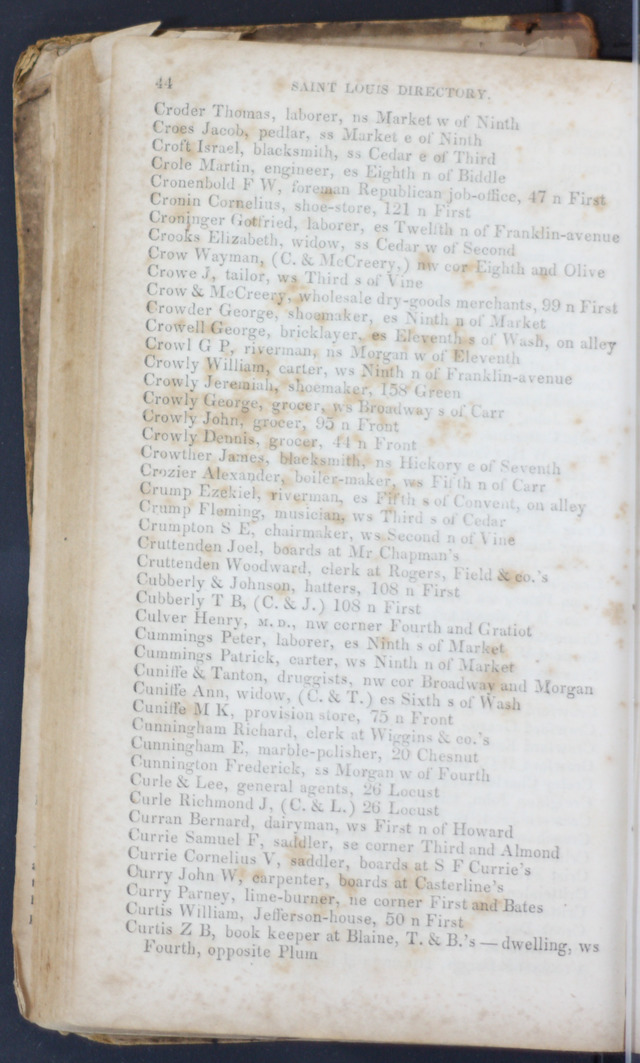 44
SAINT LOUIS DIRECTORY.
Croder Thomas, laborer, ns Market w of Ninth
Croes Jacob, pedlar, ss Market e of Ninth
Croft Israel, blacksmith, ss Cedar e of Third
Crole Martin, engineer, es Eighth n of Biddle
Cronenbold F W, foreman Republican job-office, 47 n First
Cronin Cornelius, shoe-store, 121 n First
Croninger Gotfried, laborer, es Twelfth n of Franklin-avenue
Crooks Elizabeth, widow, ss Cedar w of Second
Crow Wayman, (C. & McCreery,) nw cor Eighth and Olive
Crowe J, tailor, ws Third s of Vine
Crow & McCreery, wholesale dry-goods merchants, 99 n First
Crowder George, shoemaker, es Ninth n of Market
Crowell George, bricklayer, es Eleventh s of Wash, on alley
Crowl G P, riverman, ns Morgan w of Eleventh
Crowly William, carter, ws Ninth n of Franklin-avenue
Crowly Jeremiah, shoemaker, 158 Green
Crowly George, grocer, ws Broadway s of Carr
Crowly John, grocer, 95 n Front
Crowly Dennis, grocer, 44 n Front
Crowther James, blacksmith, ns Hickory e of Seventh
Crozier Alexander, boiler-maker, ws Fifth n of Carr
Crump Ezekiel, riverman, es Fifth s of Convent, on alley
Crump Fleming, musician, ws Third s of Cedar
Crumpton S E, chairmaker, ws Second n of Vine
Cruttenden Joel, boards at Mr Chapman's
Cruttenden Woodward, clerk at Rogers, Field & co.'s
Cubberly & Johnson, hatters, 108 n First
Cubberly T B, (C. & J.) 108 n First
Culver Henry, M. D., nw corner Fourth and Gratiot
Cummings Peter, laborer, es Ninth s of Market
Cummings Patrick, carter, ws Ninth n of Market
Cuniffe & Tanton, druggists, nw cor Broadway and Morgan
Cuniffe Ann, widow, (C. & T.) es Sixth s of Wash
Cuniffe M K, provision store, 75 n Front
Cunningham Richard, clerk at Wiggins & co.'s
Cunningham E, marble-polisher, 20 Chesnut
Cunnington Frederick, ss Morgan w of Fourth
Curle & Lee, general agents, 26 Locust
Curle Richmond J, (C. & L.) 26 Locust
Curran Bernard, dairyman, ws First n of Howard
Currie Samuel F, saddler, se corner Third and Almond
Currie Cornelius V, saddler, boards at S F Currie's
Curry John W, carpenter, boards at Casterline's
Curry Parney, lime-burner, ne corner First and Bates
Curtis William, Jefferson-house, 50 n First
Curtis Z B, book keeper at Blaine, T. & B.'s — dwelling, ws
Fourth, opposite Plum